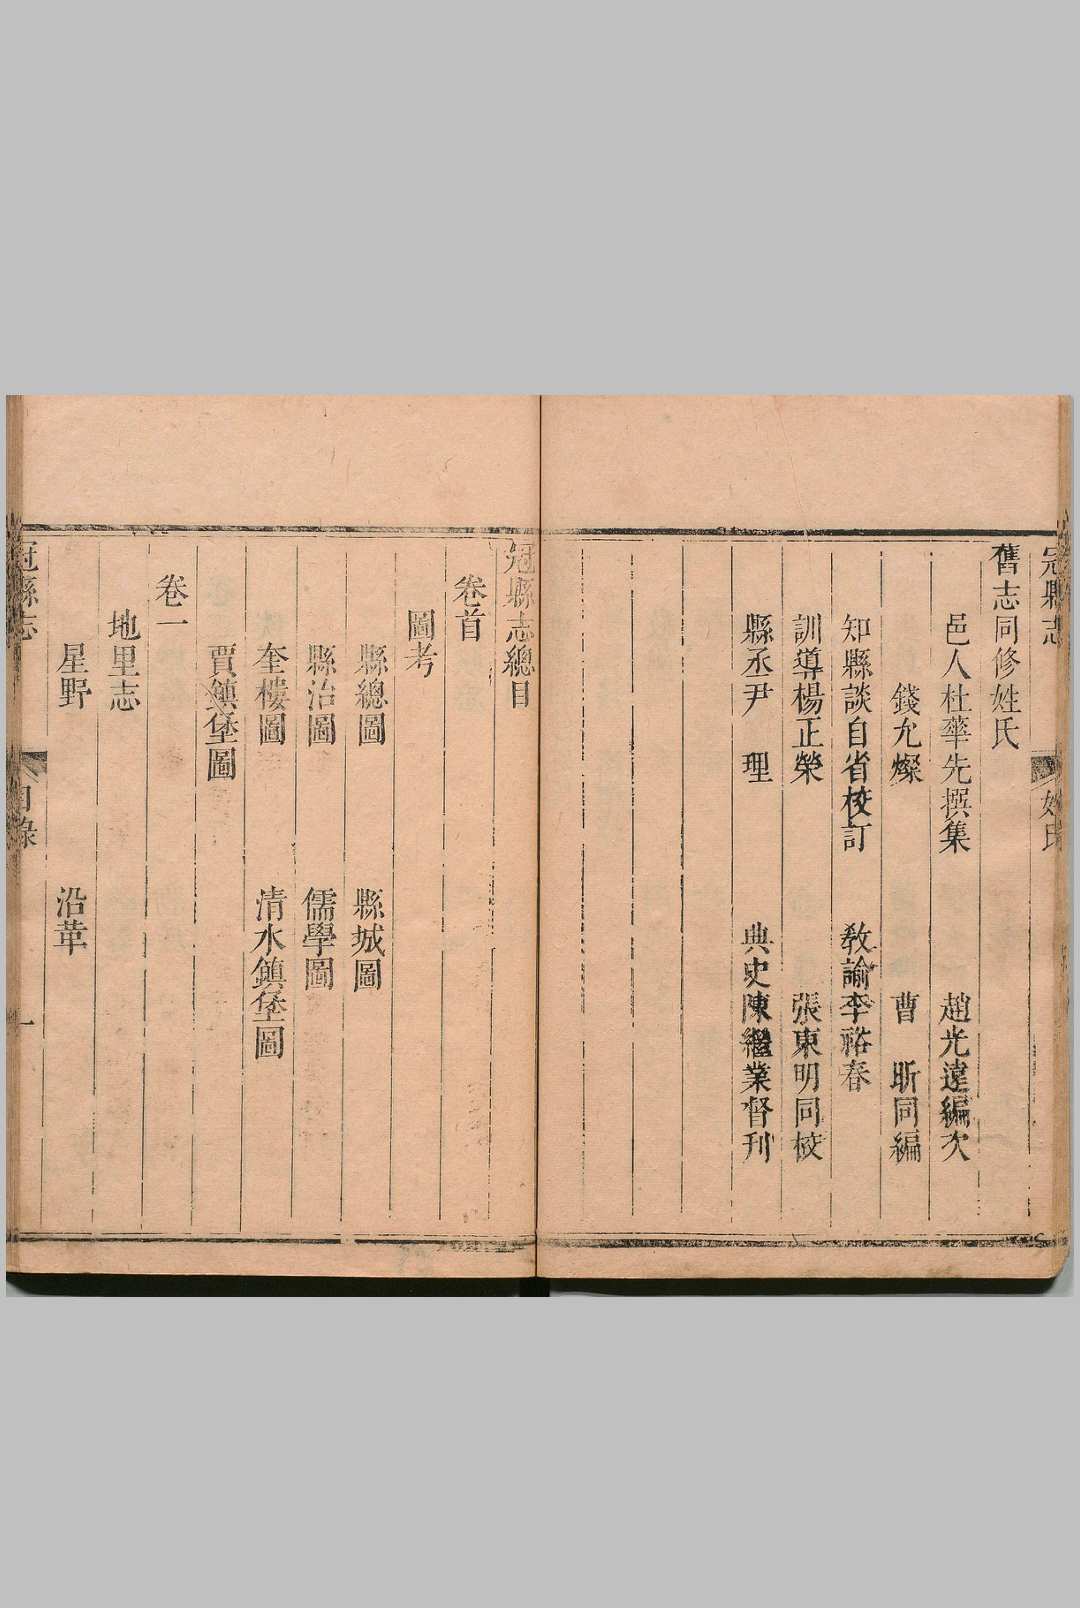 冠縣志
姓氏
舊志同修姓氏
邑人杜華先撰集　趙光遠編次
錢允燦　曹　昕同編
知縣談自省校訂　教諭李裕春
訓導楊正榮　張東明同校
縣丞尹　理　典史陳繼業督刊
冠縣志總目
卷首
圖考
縣總圖　縣城圖
縣治圖　儒學圖
奎樓圖　清水鎮堡圖
賈鎮堡圖
卷一
地里志
星野　沿革
冠縣志
目錄
一